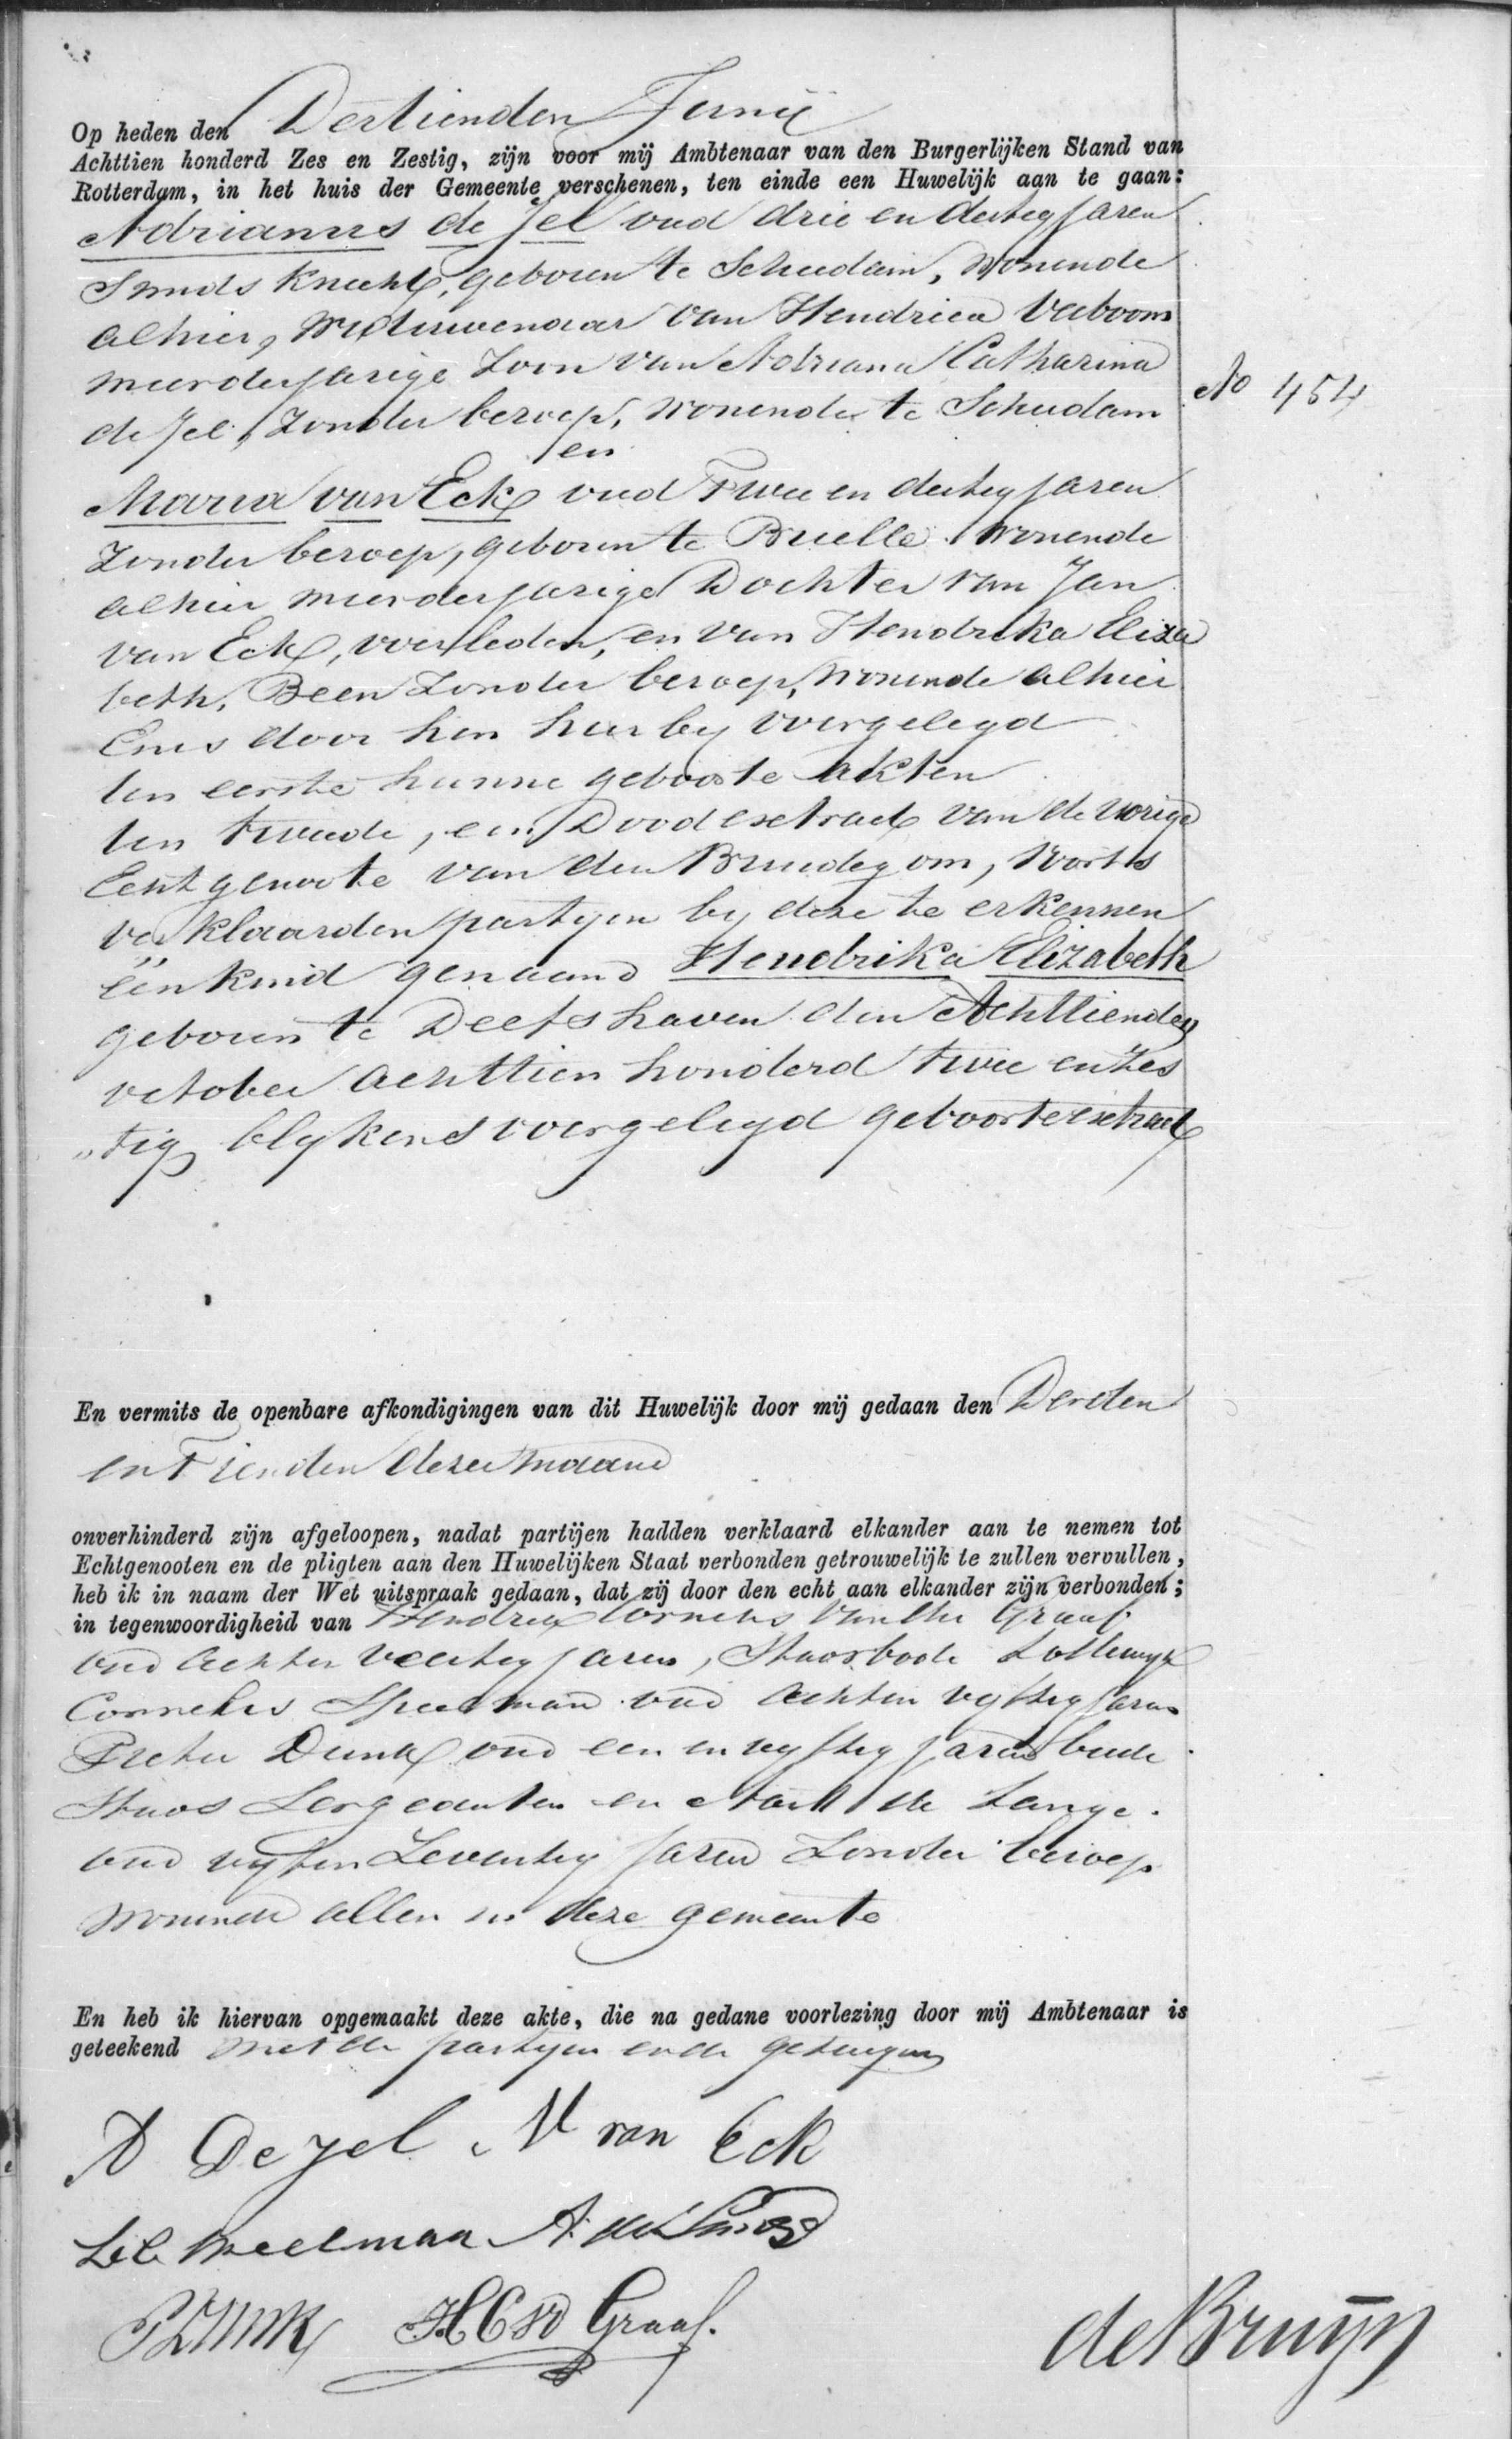 Op heden den Dertienden Junij
Achttien honderd Zes en Zestig, zijn voor mij Ambtenaar van den Burgerlijken Stand van
Rotterdam, in het huis der Gemeente verschenen, ten einde een Huwelijk aan te gaan:
Adrianus de Jel oud drie en dertig jaren
Smids Knecht, geboren te Schiedam, Wonende
alhier, Weduwenaar van Hendrica Verboom
meerderjarige Zoon van Adriana Catharina
de Jel, Zonder beroep, Wonende te Schiedam
No 454
en
Maria van Eck oud Twee en dertig jaren
Zonder beroep, geboren te Brielle Wonende
alhier meerderjarige Dochter van Jan
van Eck, overleden, en van Hendrika Eliza
beth, Been Zonder beroep, Wonende alhier
En is door hen hier by overgelegd
ten eerste hunne geboorte akten
ten tweede, een Doodextract van de vorige
Echtgenoote van den Bruidegom, voorts
verklaarden partyen by deze te erkennen
één kind genaamd Hendrika Elizabeth
geboren te Delfshaven den Achttienden
october achttien honderd twee en zes
„tig blykens overgelegd geboorteextract
En vermits de openbare afkondigingen van dit Huwelijk door mij gedaan den Derden
en Tienden dezer maand
onverhinderd zijn afgeloopen, nadat partijen hadden verklaard elkander aan te nemen tot
Echtgenooten en de pligten aan den Huwelijken Staat verbonden getrouwelijk te zullen vervullen,
heb ik in naam der Wet uitspraak gedaan, dat zij door den echt aan elkander zijn verbonden;
in tegenwoordigheid van Hendrik Cornelis van der Graaf
oud acht en veertig jaren, Stadsbode Lodewyk
Cornelis Speelman oud acht en vyftig jaren
Pieter Dunk oud een en vyftig jaren beide
Stads Sergeanten en Aart de Lange.
oud vyf en Zeventig jaren Zonder beroep
wonende allen in deze gemeente
En heb ik hiervan opgemaakt deze akte, die na gedane voorlezing door mij Ambtenaar is
geteekend met de partyen en de getuigen
A De Jel M van Eck
L.C. Speelman A. de Lange
P Dunk H C vd Graaf.
de Bruijn